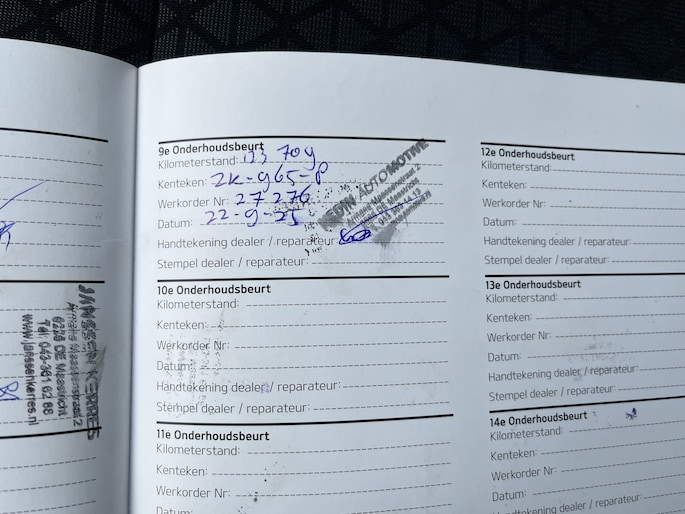 9e Onderhoudsbeurt
Kilometerstand: 123 709
Kenteken: ZK-965-P
Werkorder Nr: 27 276
Datum: 22-9-25
Handtekening dealer / reparateur
Stempel dealer / reparateur:
AUTOMOTIVE
10e Onderhoudsbeurt
Kilometerstand:
Kenteken:
Werkorder Nr:
Datum:
Handtekening dealer / reparateur:
Stempel dealer / reparateur:
11e Onderhoudsbeurt
Kilometerstand:
Kenteken:
Werkorder Nr:
Datum:
12e Onderhoudsbeurt
Kilometerstand:
Kenteken:
Werkorder Nr:
Datum:
Handtekening dealer / reparateur:
Stempel dealer / reparateur:
13e Onderhoudsbeurt
Kilometerstand:
Kenteken:
Werkorder Nr:
Datum:
Handtekening dealer / reparateur:
Stempel dealer / reparateur:
14e Onderhoudsbeurt
Kilometerstand:
Kenteken:
Werkorder Nr:
Datum:
Handtekening dealer / reparateur
JANSSEN KERRES
6228 DE Maastricht
Tel. 043-361 62 88
www.janssenkerres.nl